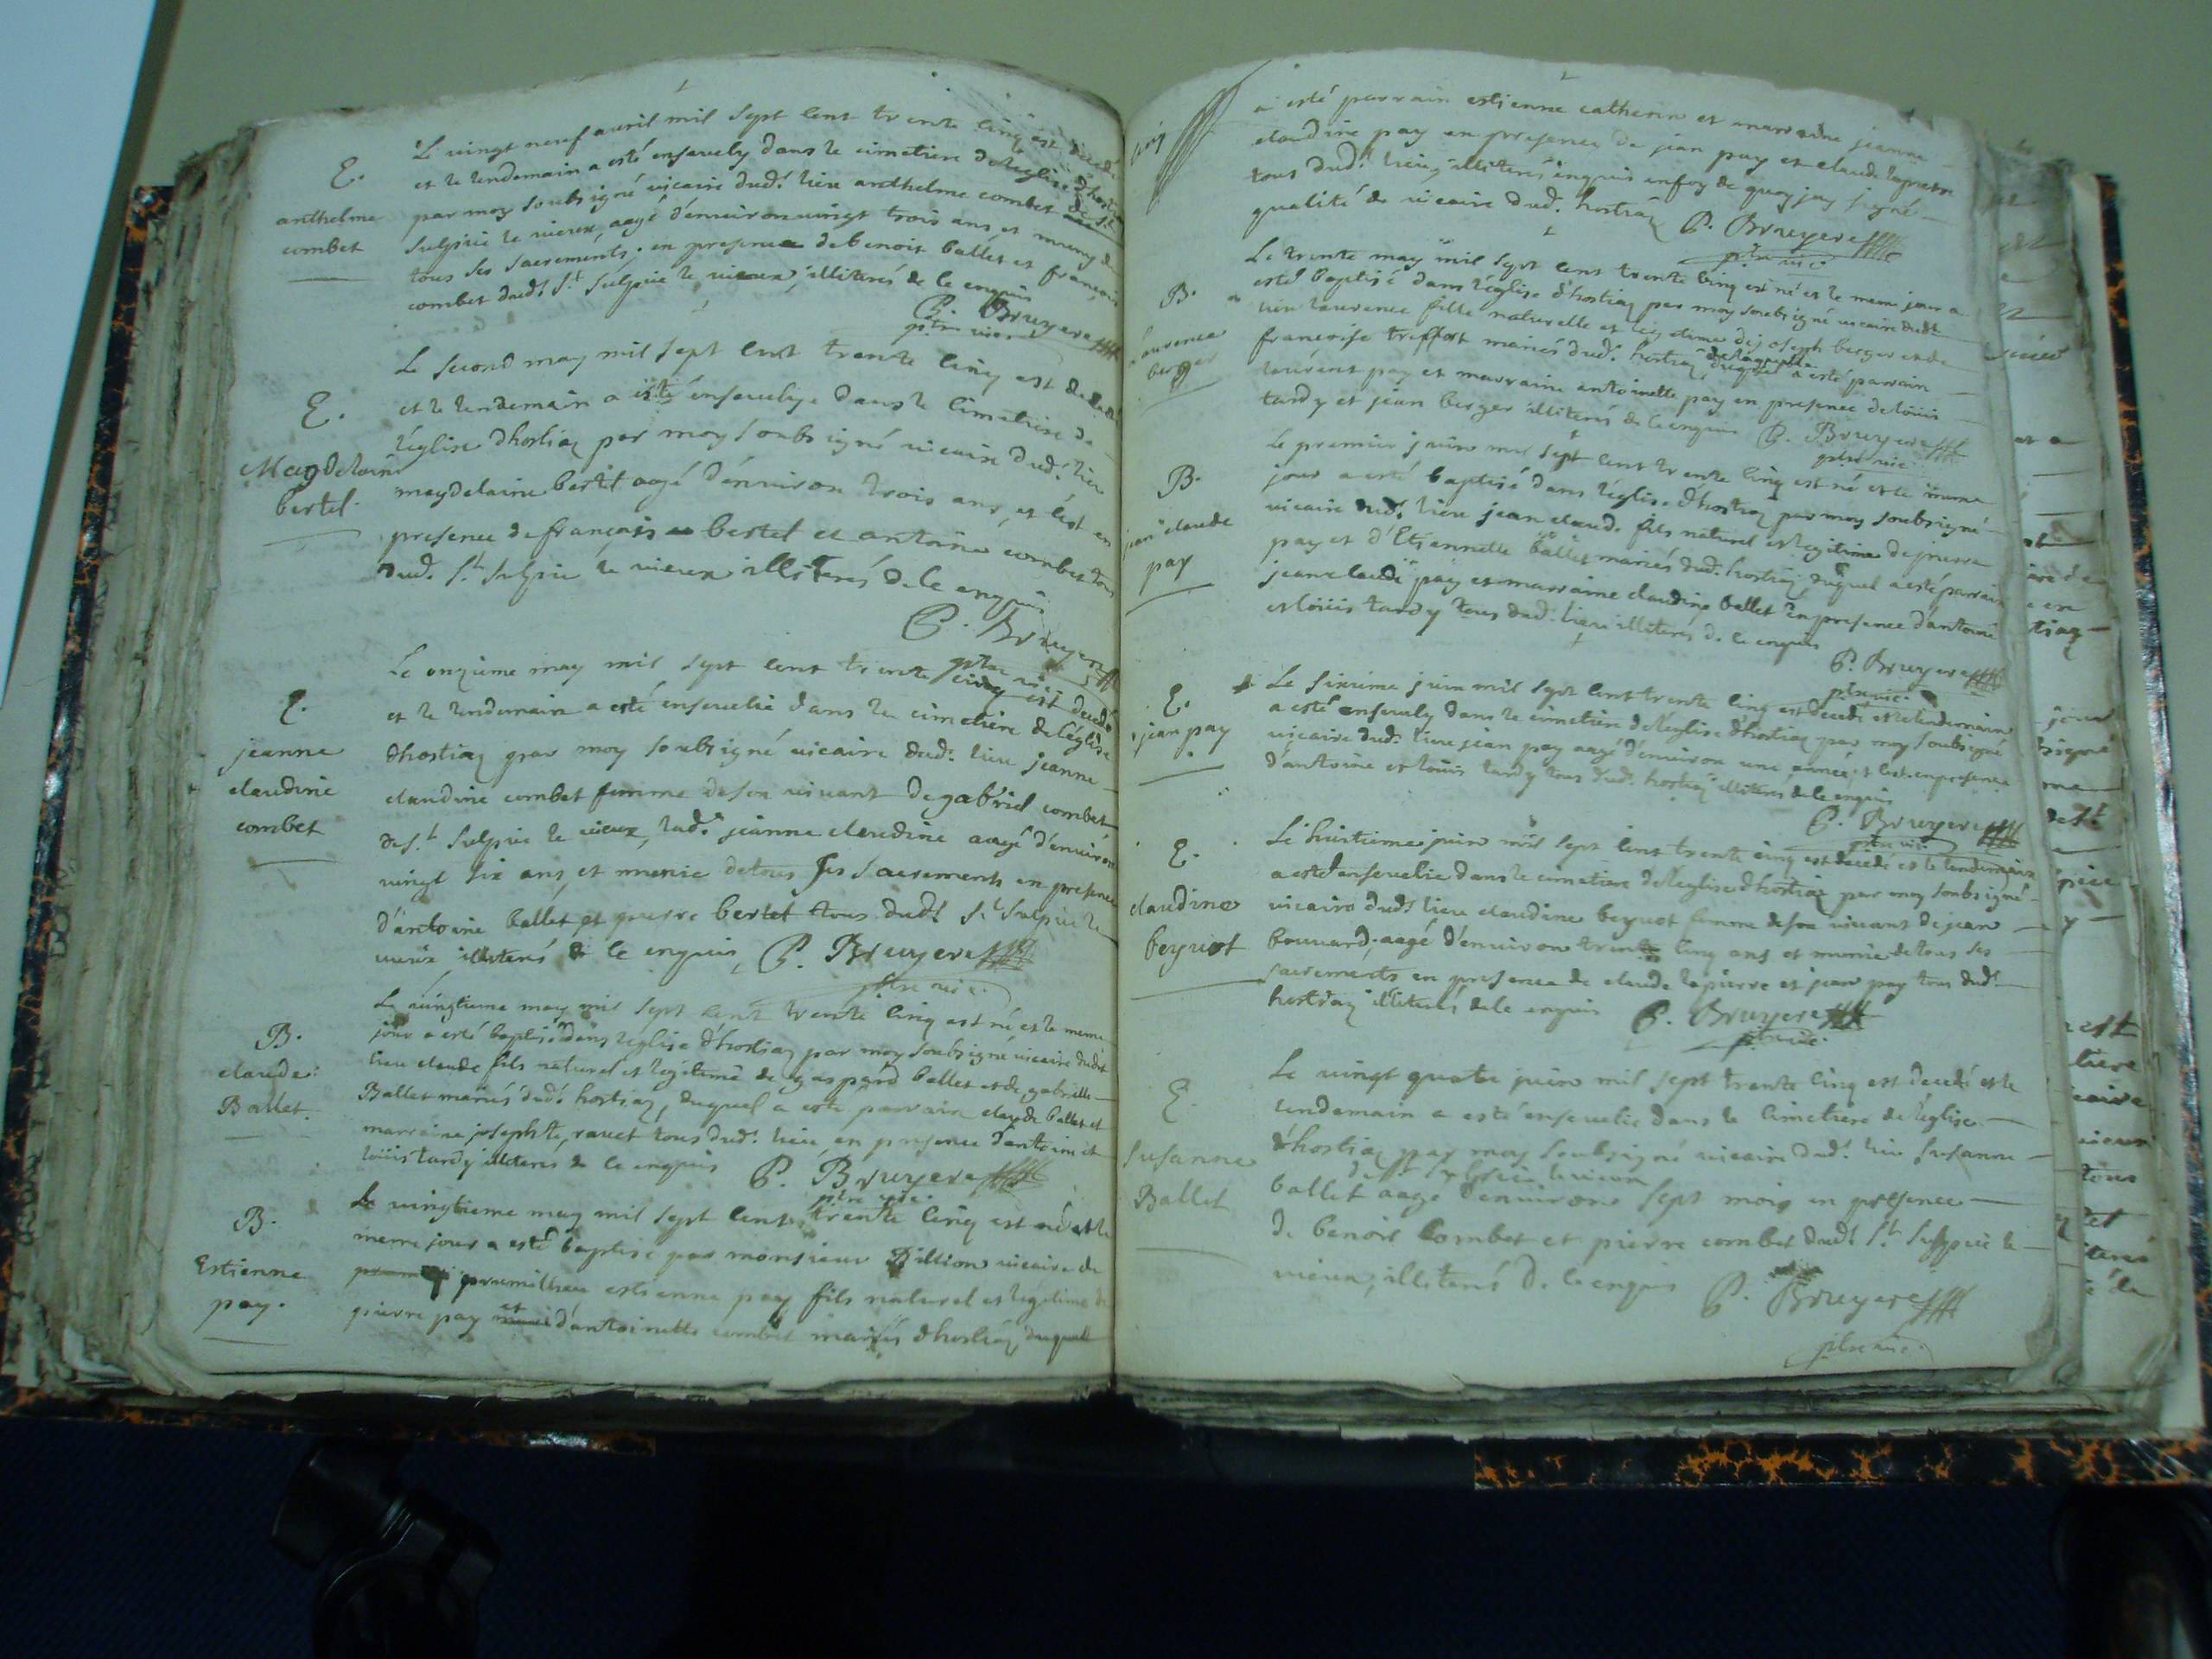 E.
anthelme
combet
Le vingt neuf avril mil sept cent trente cinq est decedé
et le lendemain a esté ensevely dans le cimetiere de l'eglise d'hostiaz
par moy soubsigné vicaire dud.t lieu anthelme combet de St
Sulpice le vieux, aagé d'environ vingt trois ans, et muny de
tous ses sacrements, en presence de benoit ballet et françois
combet dud.t S.t Sulpice le vieux, illiterés de ce enquis
P. Bruyere
ptre vic.
E.
Magdelaine
bertet.
Le second may mil sept cent trente cinq est decedé
et le lendemain a esté ensevelye dans le cimetiere de
l'eglise d'hostiaz par moy soubsigné vicaire dud.t lieu
magdelaine bertet aagé d'environ trois ans, et c'est en
presence de françois bertet et antoine combet tous
dud.t S.t Sulpice le vieux illiterés de ce enquis
P. Bruyere
ptre vic.
E.
jeanne
claudine
combet
Le onzieme may mil sept cent trente cinq est decedé
et le lendemain a esté ensevelie dans le cimetiere de l'église
d'hostiaz par moy soubsigné vicaire dud.t lieu jeanne
claudine combet femme de son vivant de gabriel combet
de S.t Sulpice le vieux, lad.e jeanne claudine aagé d'environ
vingt six ans, et munie de tous ses sacrements en presence
d'antoine ballet et pierre bertet tous dud.t S.t Sulpice le
vieux illiterés de ce enquis, P. Bruyere
ptre vic.
B.
claude
Ballet.
Le vingtieme may mil sept cent trente cinq est né et le meme
jour a esté baptisé dans l'église d'hostiaz par moy soubsigné vicaire dudit
lieu claude fils naturel et legitime de gaspard ballet et de gabrielle
Ballet mariés dud.t hostiaz, duquel a esté parrain claude ballet et
marraine josephte ravet tous dud.t lieu en presence d'antoine et
loüis tardy illiterés de ce enquis P. Bruyere
ptre vic.
B.
Estienne
pay.
Le vingtieme may mil sept cent trente cinq est né et le
meme jour a esté baptisé par monsieur Dillion vicaire de
premillieu estienne pay fils naturel et legitime de
pierre pay et d'antoinette combet mariés d'hostiaz, duquel
a esté parrain estienne catherin et marraine jeanne
claudine pay en presence de jean pay et claude lapierre
tous dud.t lieu, illiterés enquis en foy de quoy jay signé
qualité de vicaire dud.t hostiaz P. Bruyere
ptre vic.
B.
laurence
berger
Le trente may mil sept cent trente cinq est né et le meme jour a
esté baptisé dans l'église d'hostiaz par moy soubsigné vicaire dudit
lieu laurence fille naturelle et legitime de joseph berger et de
françoise treffort mariés dud.t hostiaz, de laquelle a esté parrain
laurent pay et marraine antoinette pay en presence de loüis
tardy et jean berger illiterés de ce enquis P. Bruyere
ptre vic.
B.
jean claude
pay
Le premier juin mil sept cent trente cinq est né et le meme
jour a esté baptisé dans l'église d'hostiaz par moy soubsigné
vicaire dud.t lieu jean claude fils naturel et legitime de pierre
pay et d'Etiennette ballet mariés dud.t hostiaz, duquel a esté parrain
jean claude pay et marraine claudine ballet en presence d'antoine
et loüis tardy tous dud.t lieu illiterés de ce enquis
P. Bruyere
ptre vic.
E.
jean pay
Le sixieme juin mil sept cent trente cinq est decedé et le lendemain
a esté ensevely dans le cimetiere de l'eglise d'hostiaz par moy soubsigné
vicaire dud.t lieu jean pay aagé d'environ une année et c'est en presence
d'antoine et loüis tardy tous dud.t hostiaz illiterés de ce enquis
P. Bruyere
ptre vic.
E.
claudine
beyuot
Le huitieme juin mil sept cent trente cinq est decedé et le lendemain
a esté ensevelie dans le cimetiere de l'eglise d'hostiaz par moy soubsigné
vicaire dud.t lieu claudine beyuot femme de son vivant de jean
bouvard, aagé d'environ trente cinq ans et munie de tous ses
sacrements en presence de claude lapierre et jean pay tous dud.t
hostiaz illiterés de ce enquis P. Bruyere
ptre vic.
E.
Susanne
Ballet
Le vingt quatre juin mil sept trente cinq est decedé et le
lendemain a esté ensevelie dans le cimetiere de l'église
d'hostiaz par moy soubsigné vicaire dud.t lieu susanne
de St Sulpice le vieux
ballet aagé d'environ sept mois en presence
de benoit combet et pierre combet dud.t S.t Sulpice le
vieux, illiterés de ce enquis P. Bruyere
ptre vic.